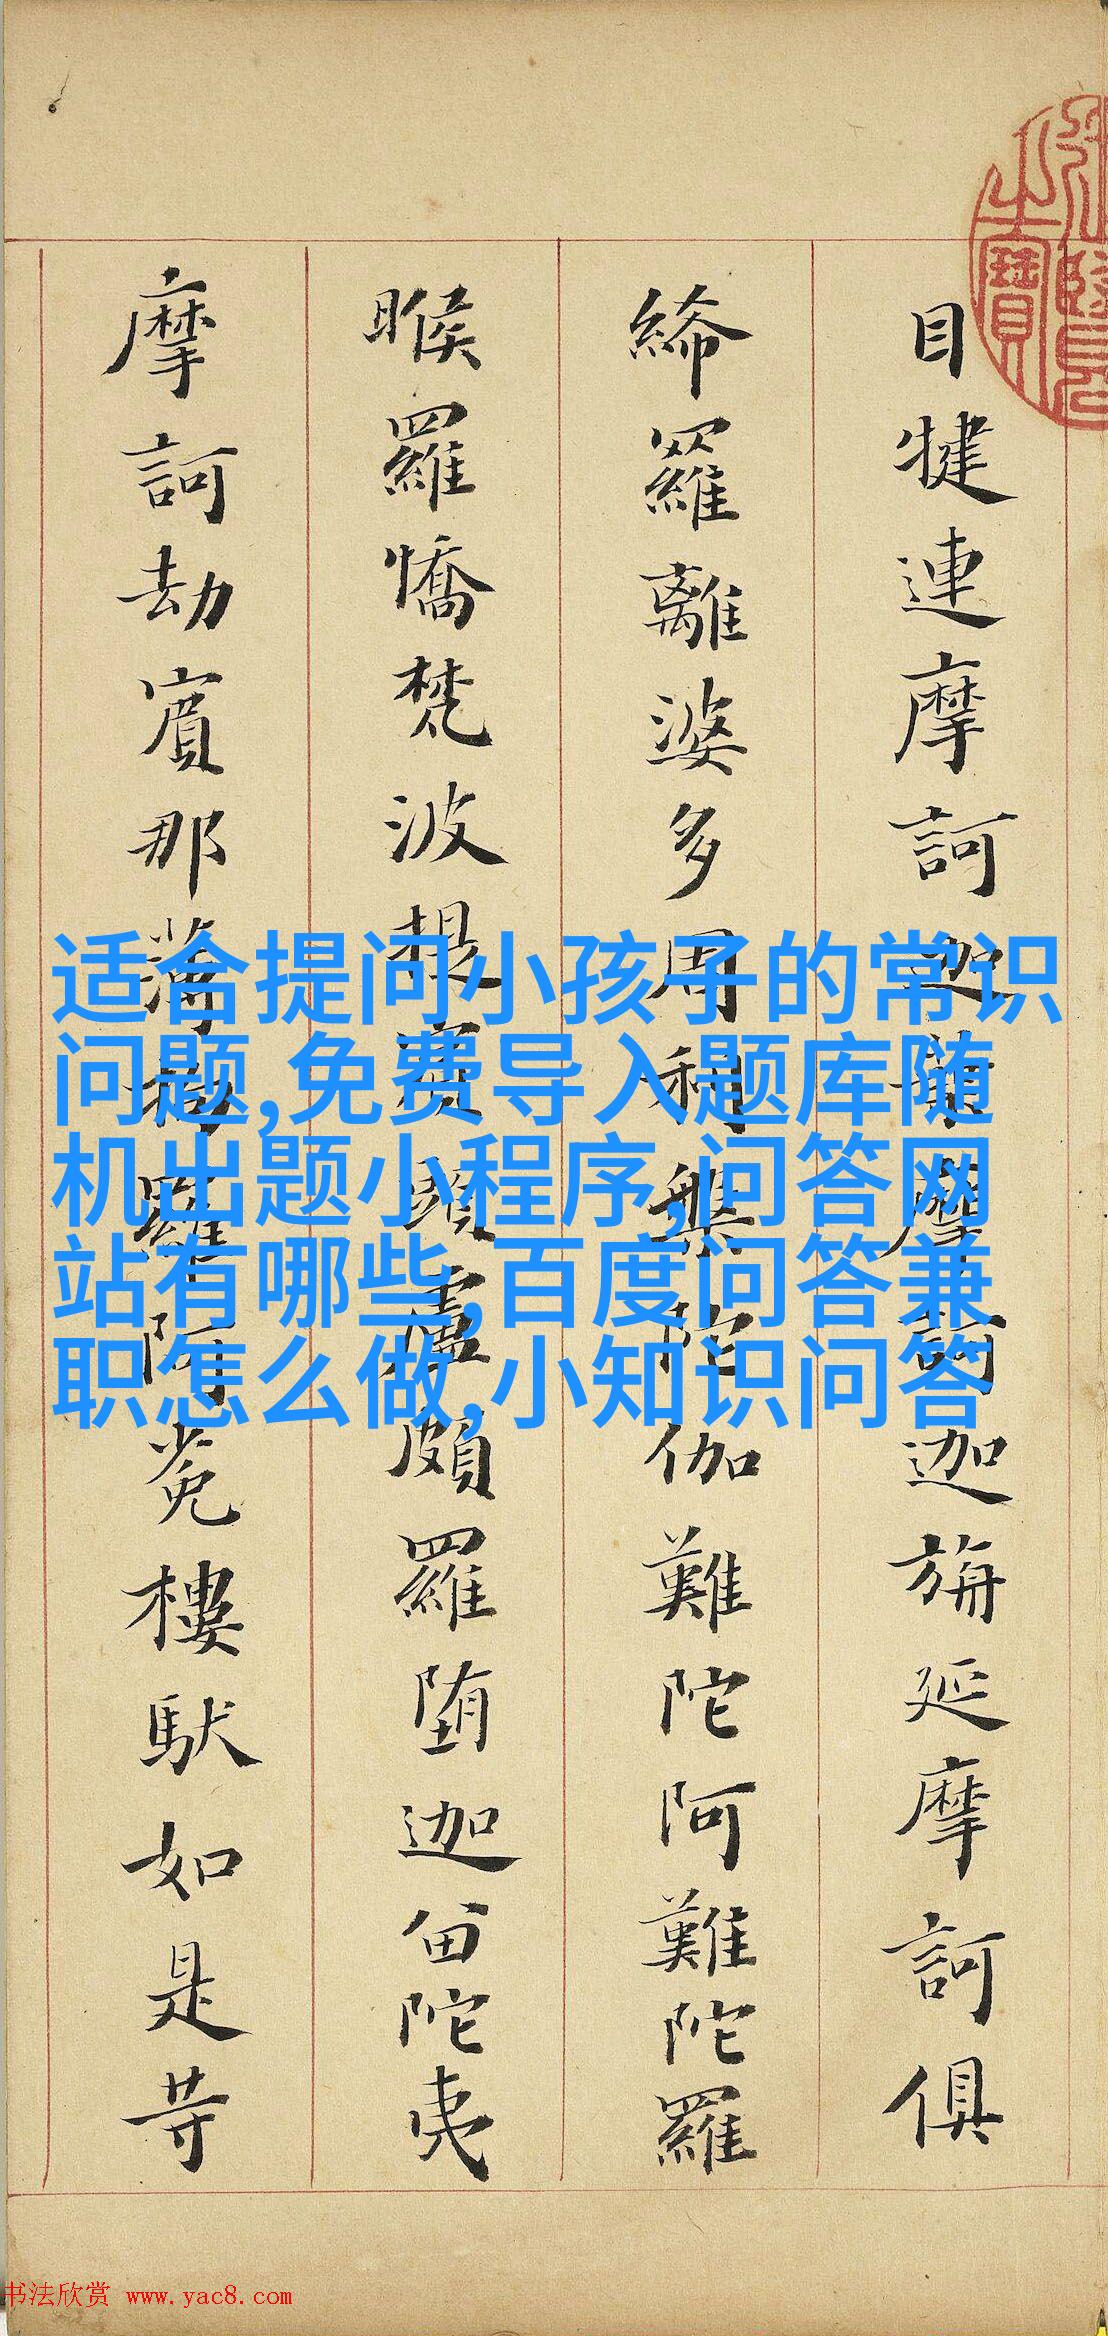 目犍連摩訶迦葉摩訶迦旃延摩訶俱
絺羅離婆多周利槃陀伽難陀阿難陀羅
睺羅憍梵波提賓頭盧頗羅堕迦畱陀夷
摩訶劫賓那薄拘羅阿㝹樓馱如是等
适合提问小孩子的常识
问题,免费导入题库随
机出题小程序,问答网
站有哪些,百度问答兼
职怎么做,小知识问答
书法欣赏 www.yac8.com